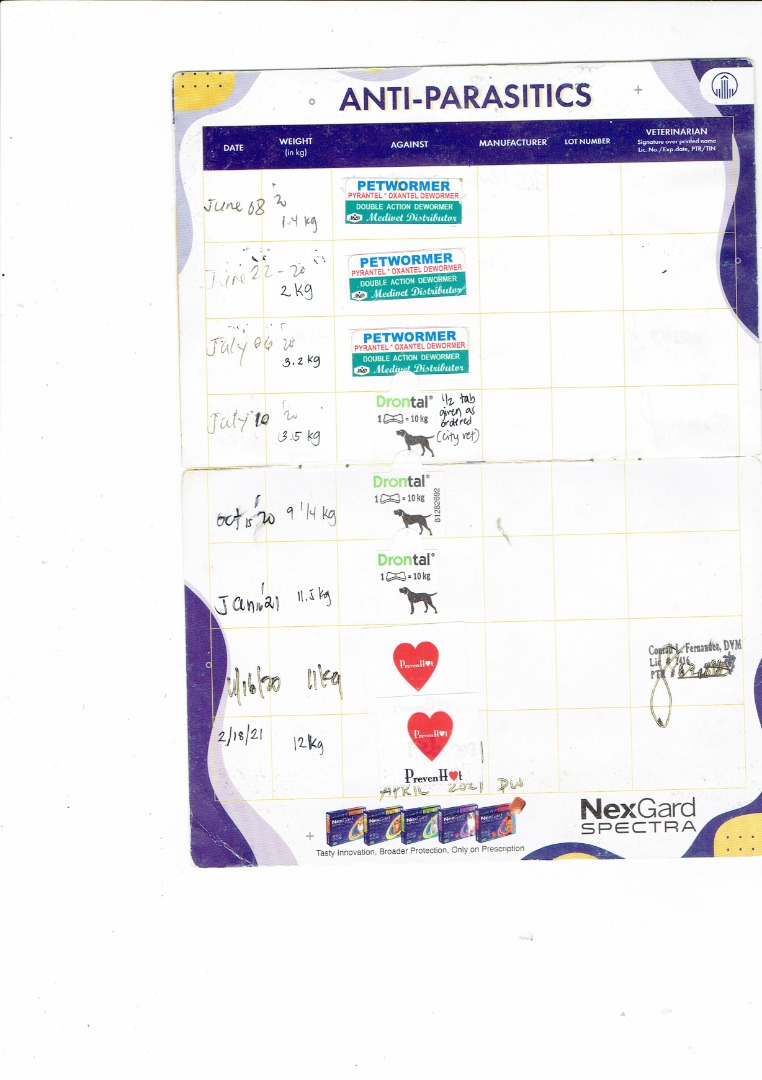 ANTI-PARASITICS
DATE WEIGHT (in kg) AGAINST MANUFACTURER LOT NUMBER VETERINARIAN
Signature over printed name
Lic. No./Exp.date, PTR/TIN
June 08 20 1.4 kg
PETWORMER
PYRANTEL * OXANTEL DEWORMER
DOUBLE ACTION DEWORMER
Medivet Distributor
June 22 - 20 2 kg
PETWORMER
PYRANTEL * OXANTEL DEWORMER
DOUBLE ACTION DEWORMER
Medivet Distributor
July 06 20 3.2 kg
PETWORMER
PYRANTEL * OXANTEL DEWORMER
DOUBLE ACTION DEWORMER
Medivet Distributor
July 10 20 3.5 kg
Drontal®
1 = 10 kg
1/2 tab
given as
ordered
(city vet)
Oct 15 20 9 1/4 kg
Drontal®
1 = 10 kg
81282692
Jan 21 11.5 kg
Drontal®
1 = 10 kg
11/16/20 11 kg
PrevenH♥t
Fernandez, DVM
Lic #
PTR #
2/18/21 12 kg
PrevenH♥t
PrevenH♥t
APRIL 2021 DW
NexGard
SPECTRA
Tasty Innovation, Broader Protection, Only on Prescription